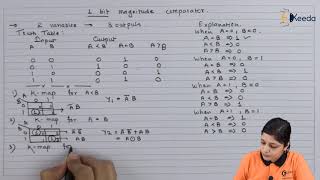 1 bit magnitude comparator.
Ekeeda
→ 2 variables → 3 outputs
Explanation.
Truth Table:
When A=0, B=0
Input Output
A = B ⇒ 1 ✓
A B A<B A=B A>B
A < B ⇒ 0
A > B ⇒ 0
0 0 0 1 0
When A=0, B=1
0 1 1 0 0
A < B ⇒ 1
1 0 0 0 1
A = B ⇒ 0
1 1 0 1 0
A > B ⇒ 0
When A=1, B=0
1) K-map for A<B
A > B ⇒ 1
A = B ⇒ 0
A < B ⇒ 0
Y₁ = A̅B
When A=1, B=1
2) K-map for A=B
A = B ⇒ 1
A̅B̅ Y₂ = A̅B̅ + AB
A < B ⇒ 0
AB = A⊙B
A > B ⇒ 0
3) K-map fo